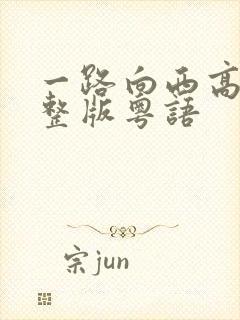 一路向西高
整版粤語
宗jun